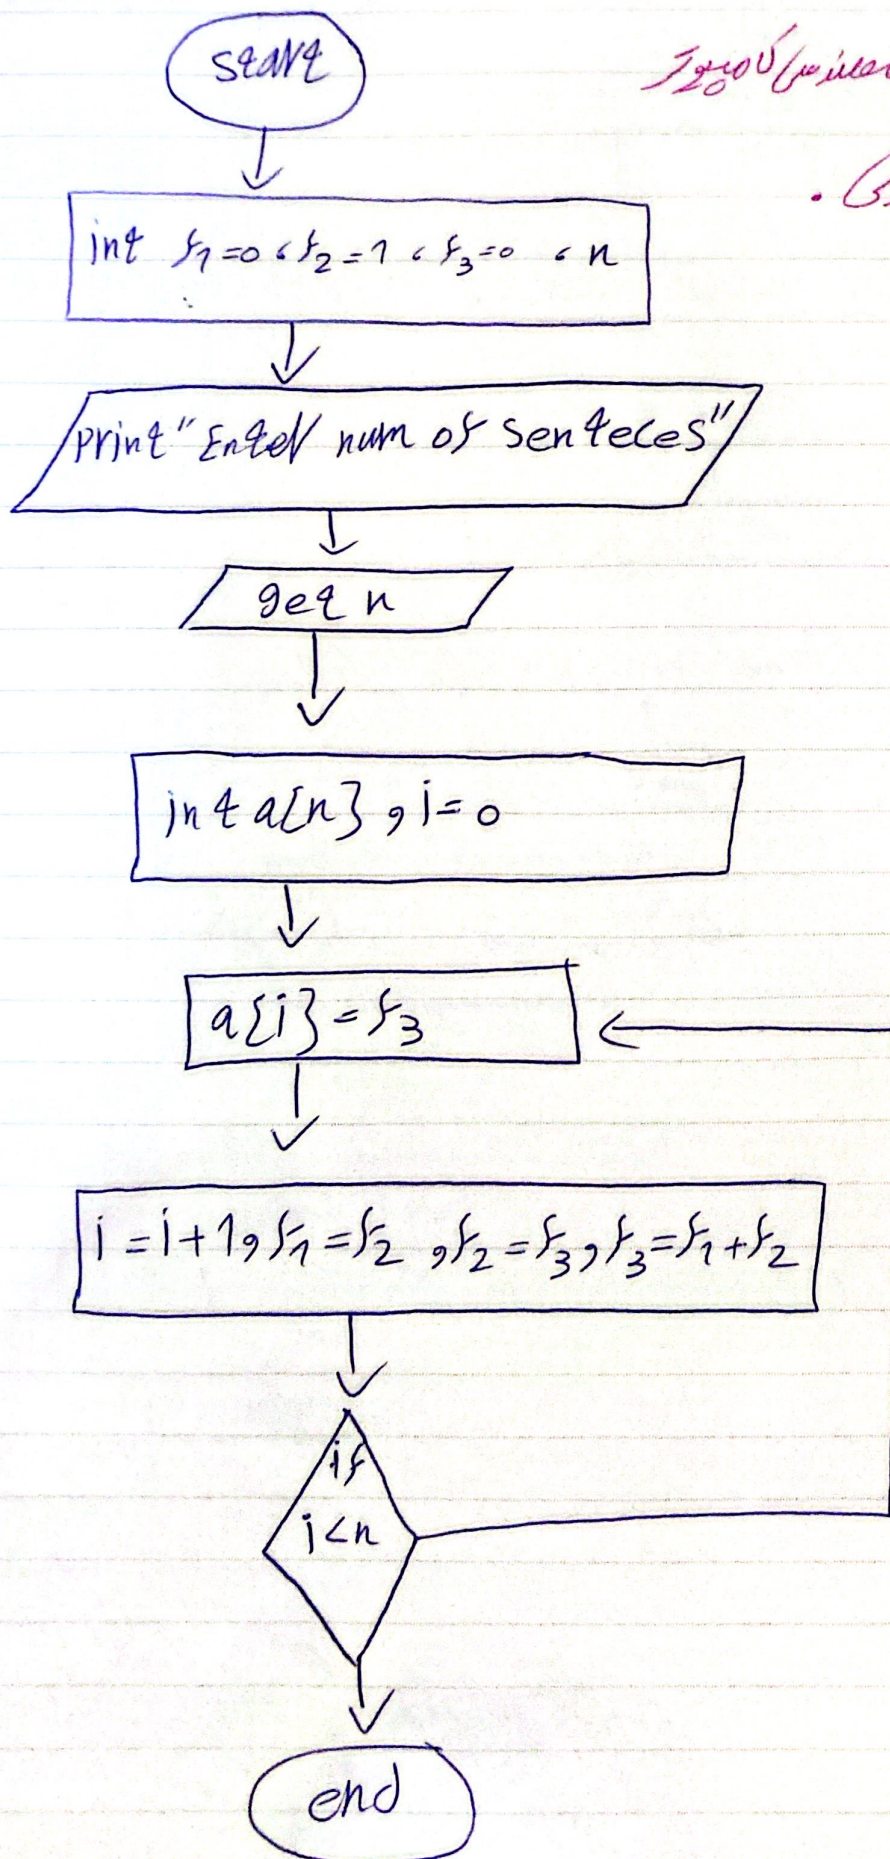 start
کامپیوتر
int f1=0 ، f2=1 ، f3=0 ، n
print "Enter num of senteces"
get n
int a[n] , i=0
a[i]=f3
i=i+1, f1=f2 , f2=f3, f3=f1+f2
if
i<n
end